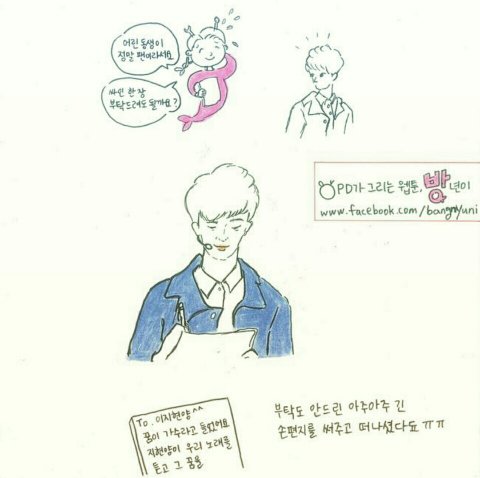 어린 동생이
정말 팬이라서요
싸인 한 장
부탁드려도 될까요?
PD가 그리는 웹툰, 방년이
www.facebook.com/bangnyuni
To. 이지현양^^
꿈이 가수라고 들었어요
지현양이 우리 노래를
듣고 그 꿈을
부탁도 안드린 아주아주 긴
손편지를 써주고 떠나셨다됴 ㅠㅠ